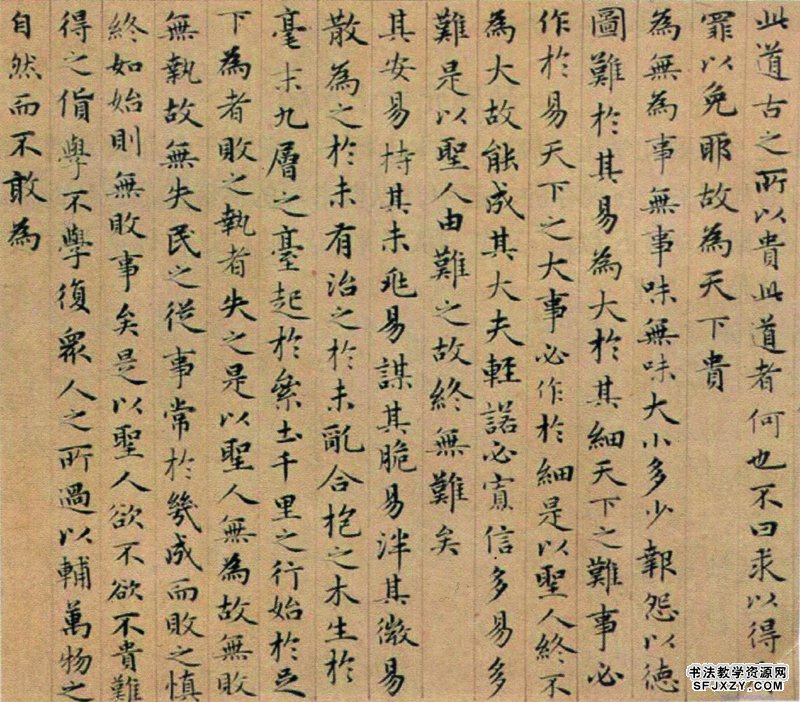 此道古之所以貴此道者何也不曰求以得
罪以免耶故為天下貴
為無為事無事味無味大小多少報怨以德
圖難於其易為大於其細天下之難事必
作於易天下之大事必作於細是以聖人終不
為大故能成其大夫輕諾必寡信多易多
難是以聖人由難之故終無難矣
其安易持其未兆易謀其脆易泮其微易
散為之於未有治之於未亂合抱之木生於
毫末九層之臺起於累土千里之行始於足
下為者敗之執者失之是以聖人無為故無敗
無執故無失民之從事常於幾成而敗之慎
終如始則無敗事矣是以聖人欲不欲不貴難
得之貨學不學復眾人之所過以輔萬物之
自然而不敢為
书法教学资源网
SFJXZY.COM